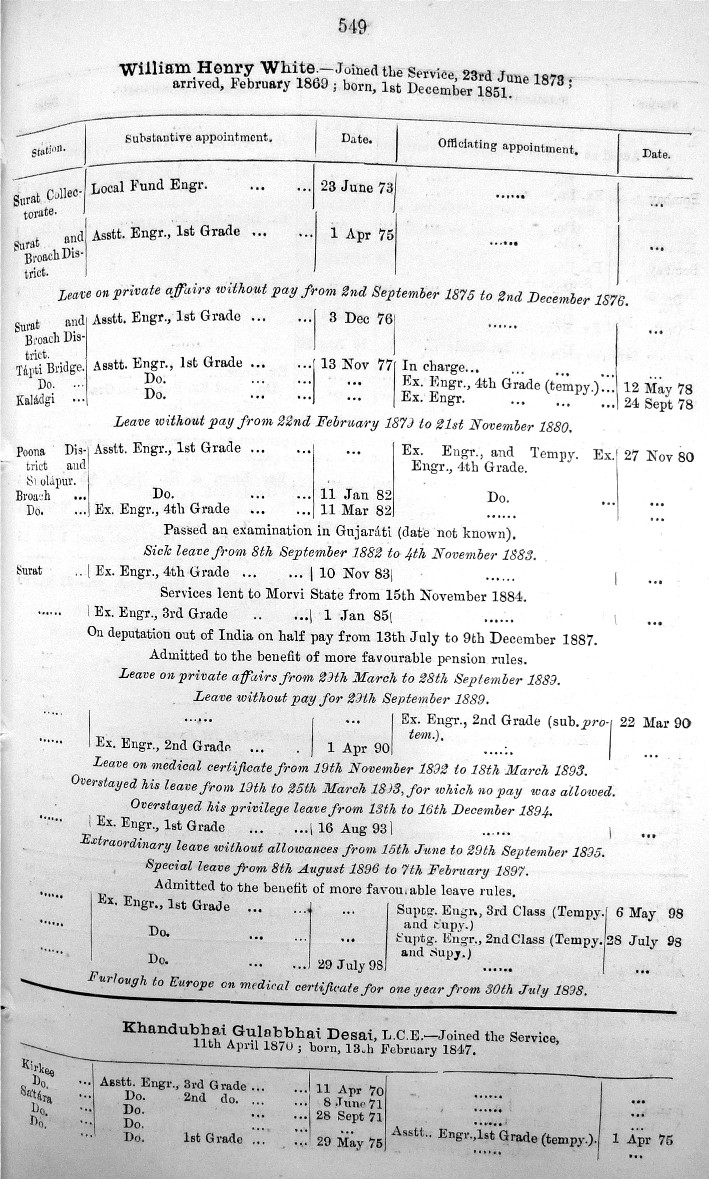 549
William Henry White.—Joined the Service, 23rd June 1873;
arrived, February 1869; born, 1st December 1851.
Station. Substantive appointment. Date. Officiating appointment. Date.
Surat Collec- Local Fund Engr. ... ... 23 June 73 ...... ...
torate.
Surat and Asstt. Engr., 1st Grade ... ... 1 Apr 75 ...... ...
Broach Dis-
trict.
Leave on private affairs without pay from 2nd September 1875 to 2nd December 1876.
Surat and Asstt. Engr., 1st Grade ... ... 3 Dec 76 ...... ...
Broach Dis-
trict.
Tápti Bridge. Asstt. Engr., 1st Grade ... ... 13 Nov 77 In charge... ... ... ... ...
Do. ... Do. ... ... ... Ex. Engr., 4th Grade (tempy.)... 12 May 78
Kaládgi ... Do. ... ... ... Ex. Engr. ... ... ... 24 Sept 78
Leave without pay from 22nd February 1879 to 21st November 1880.
Poona Dis- Asstt. Engr., 1st Grade ... ... ... Ex. Engr., and Tempy. Ex. 27 Nov 80
trict and Engr., 4th Grade.
Sholápur.
Broach ... Do. ... ... 11 Jan 82 Do. ... ...
Do. ... Ex. Engr., 4th Grade ... ... 11 Mar 82 ...... ...
Passed an examination in Gujaráti (date not known).
Sick leave from 8th September 1882 to 4th November 1883.
Surat .. Ex. Engr., 4th Grade ... ... 10 Nov 83 ...... ...
Services lent to Morvi State from 15th November 1884.
...... Ex. Engr., 3rd Grade .. ... 1 Jan 85 ...... ...
On deputation out of India on half pay from 13th July to 9th December 1887.
Admitted to the benefit of more favourable pension rules.
Leave on private affairs from 29th March to 28th September 1889.
Leave without pay for 29th September 1889.
...... ...... ... Ex. Engr., 2nd Grade (sub. pro- 22 Mar 90
tem.).
...... Ex. Engr., 2nd Grade ... . 1 Apr 90 ...... ...
Leave on medical certificate from 19th November 1892 to 18th March 1893.
Overstayed his leave from 19th to 25th March 1893, for which no pay was allowed.
Overstayed his privilege leave from 13th to 16th December 1894.
...... Ex. Engr., 1st Grade ... ... 16 Aug 93 ...... ...
Extraordinary leave without allowances from 15th June to 29th September 1895.
Special leave from 8th August 1896 to 7th February 1897.
Admitted to the benefit of more favourable leave rules.
...... Ex. Engr., 1st Grade ... ... ... Suptg. Engr., 3rd Class (Tempy. 6 May 98
and Supy.)
...... Do. ... ... ... Suptg. Engr., 2nd Class (Tempy. 28 July 98
and Supy.)
...... Do. ... ... 29 July 98 ...... ...
Furlough to Europe on medical certificate for one year from 30th July 1898.
Khandubhai Gulabbhai Desai, L.C.E.—Joined the Service,
11th April 1870; born, 13th February 1847.
Kirkee ... Asstt. Engr., 3rd Grade ... ... 11 Apr 70 ...... ...
Do. ... Do. 2nd do. ... ... 8 June 71 ...... ...
Satára ... Do. ... ... 28 Sept 71 ...... ...
Do. ... Do. ... ... ... Asstt.. Engr., 1st Grade (tempy.). 1 Apr 75
Do. ... Do. 1st Grade ... ... 29 May 75 ...... ...